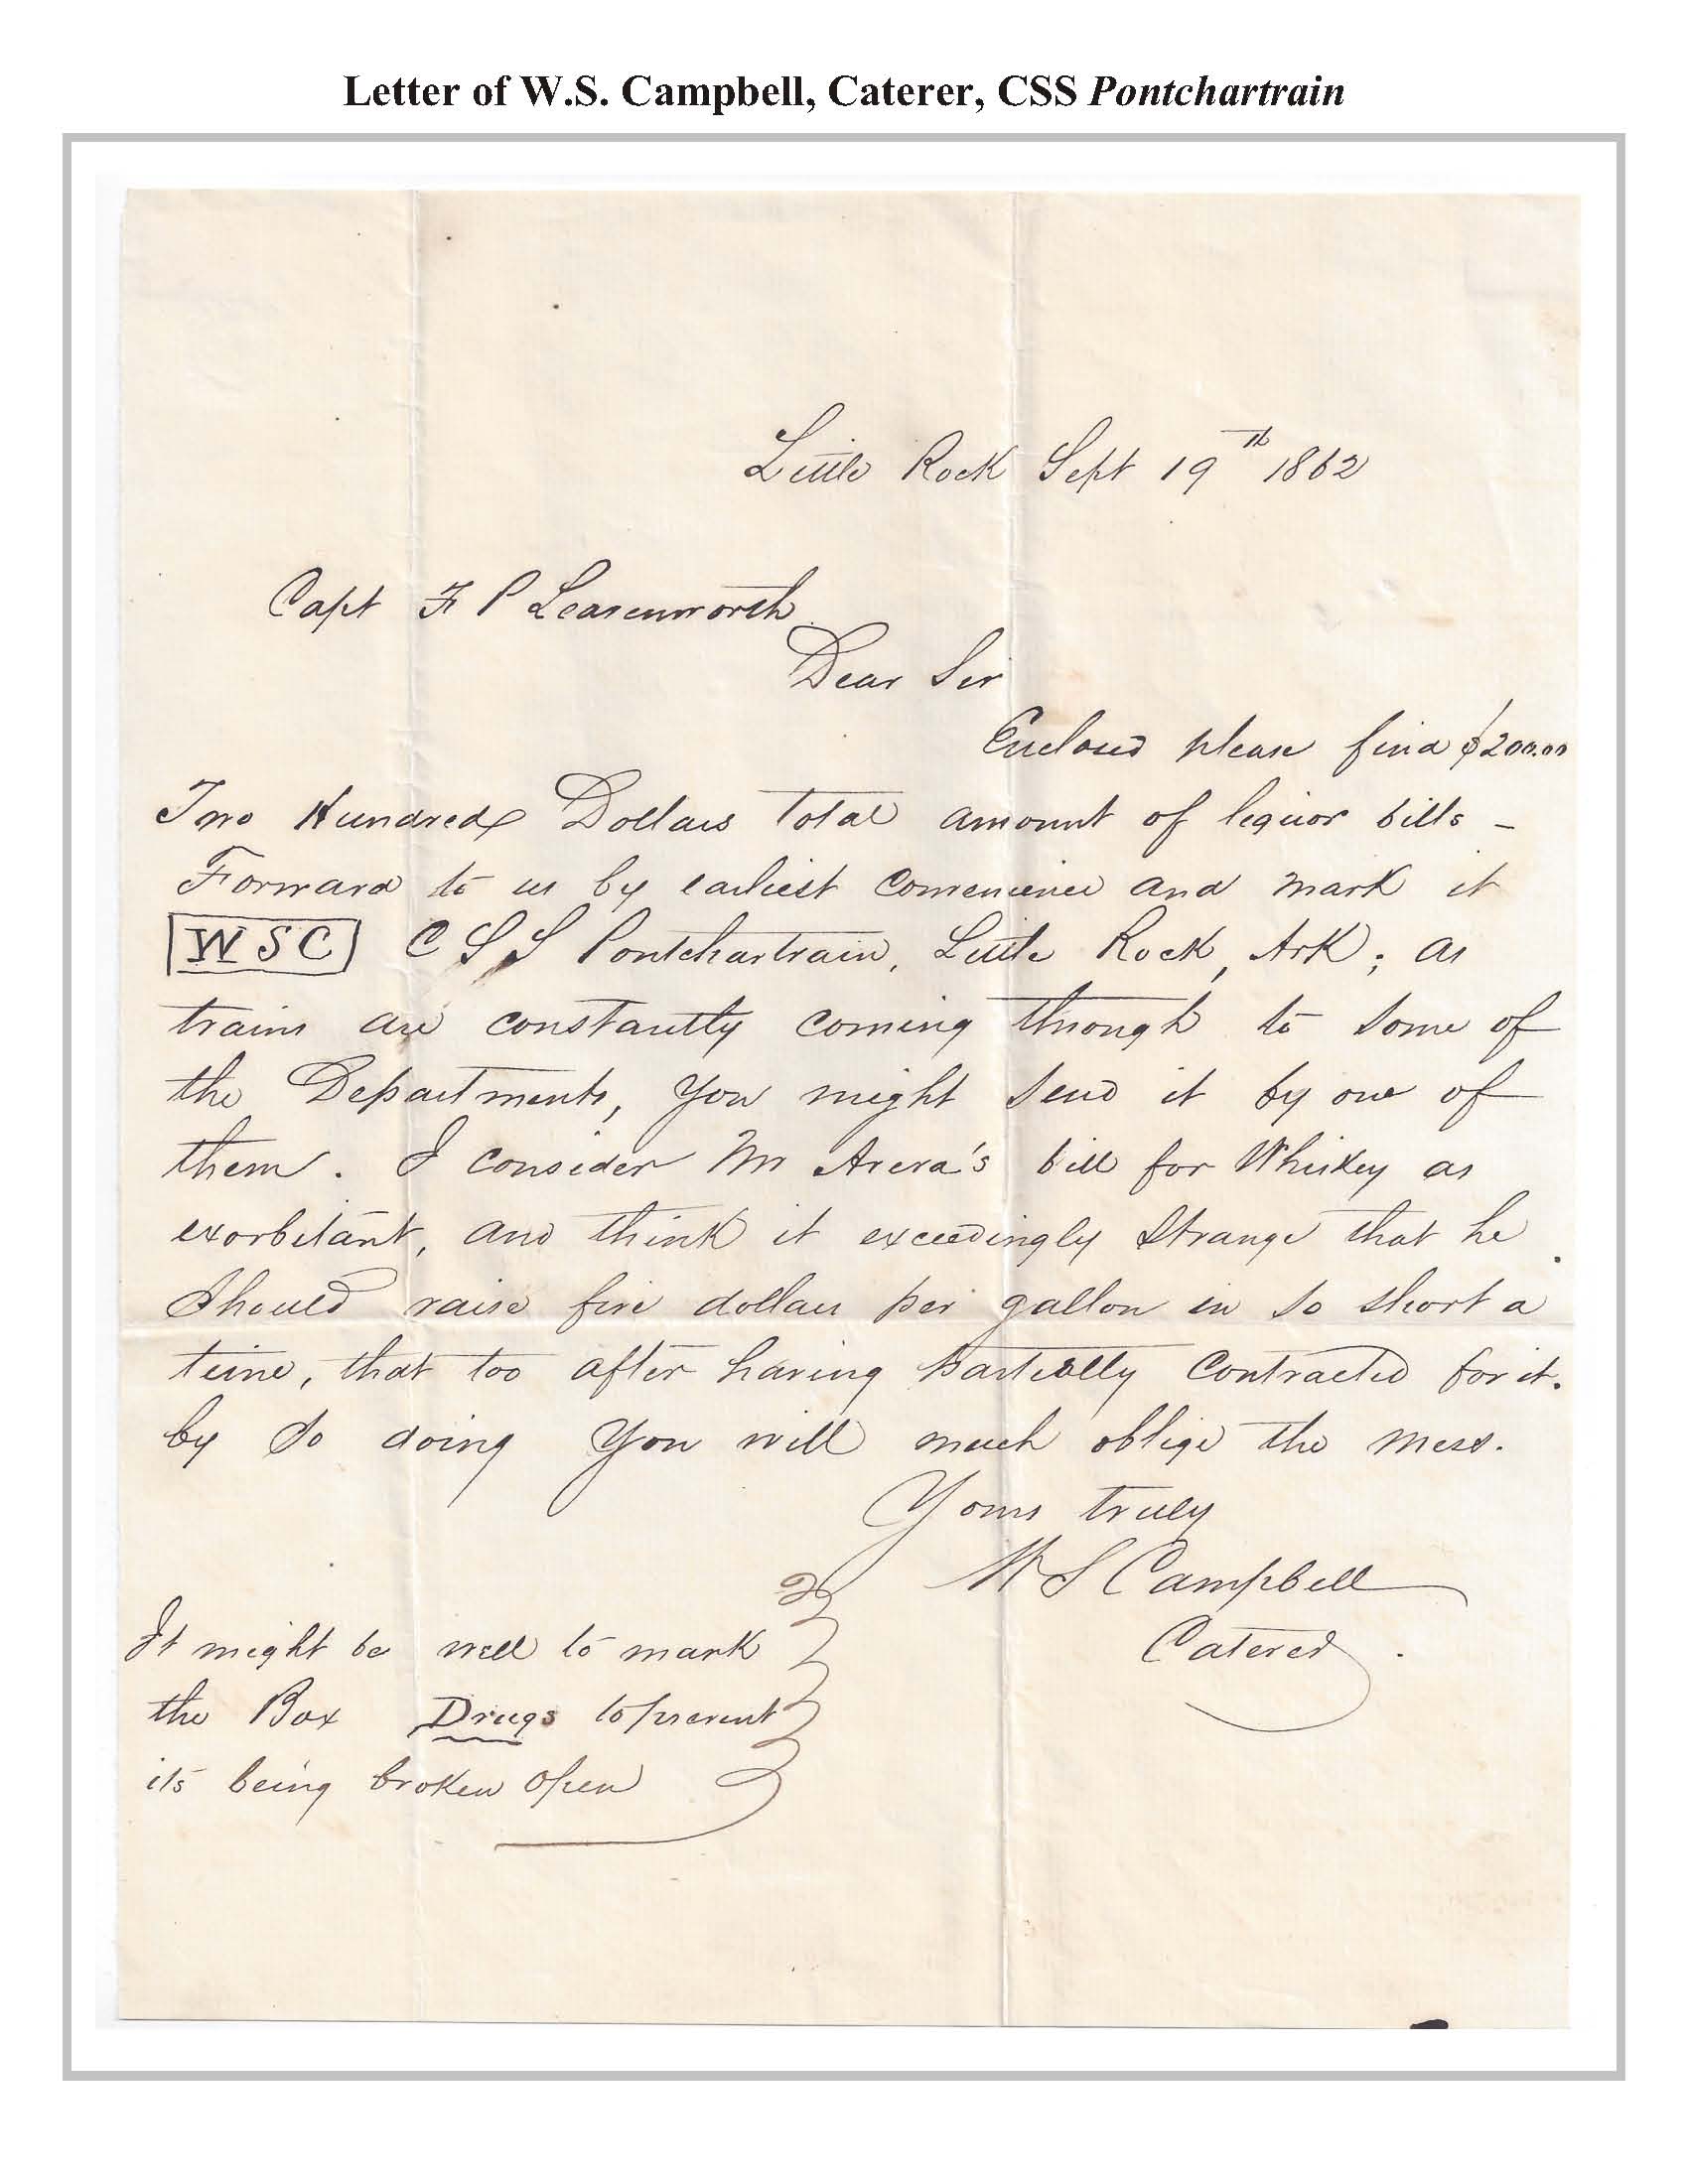 Letter of W.S. Campbell, Caterer, CSS Pontchartrain
Little Rock Sept 19th 1862
Capt F P Leavenworth
Dear Sir
Enclosed please find $200.00
Two Hundred Dollars total amount of liquor bills –
Forward to us by earliest convenience and mark it
WSC C S S Pontchartrain, Little Rock, Ark; as
trains are constantly coming through to some of
the Departments, you might send it by one of
them. I consider Mr Avera's bill for Whiskey as
exorbitant, and think it exceedingly strange that he
should raise five dollars per gallon in so short a
time, that too after having partially contracted for it.
by so doing you will much oblige the mess.
Yours truly
W S Campbell
Caterer.
It might be well to mark
the Box Drugs to prevent
its being broken open